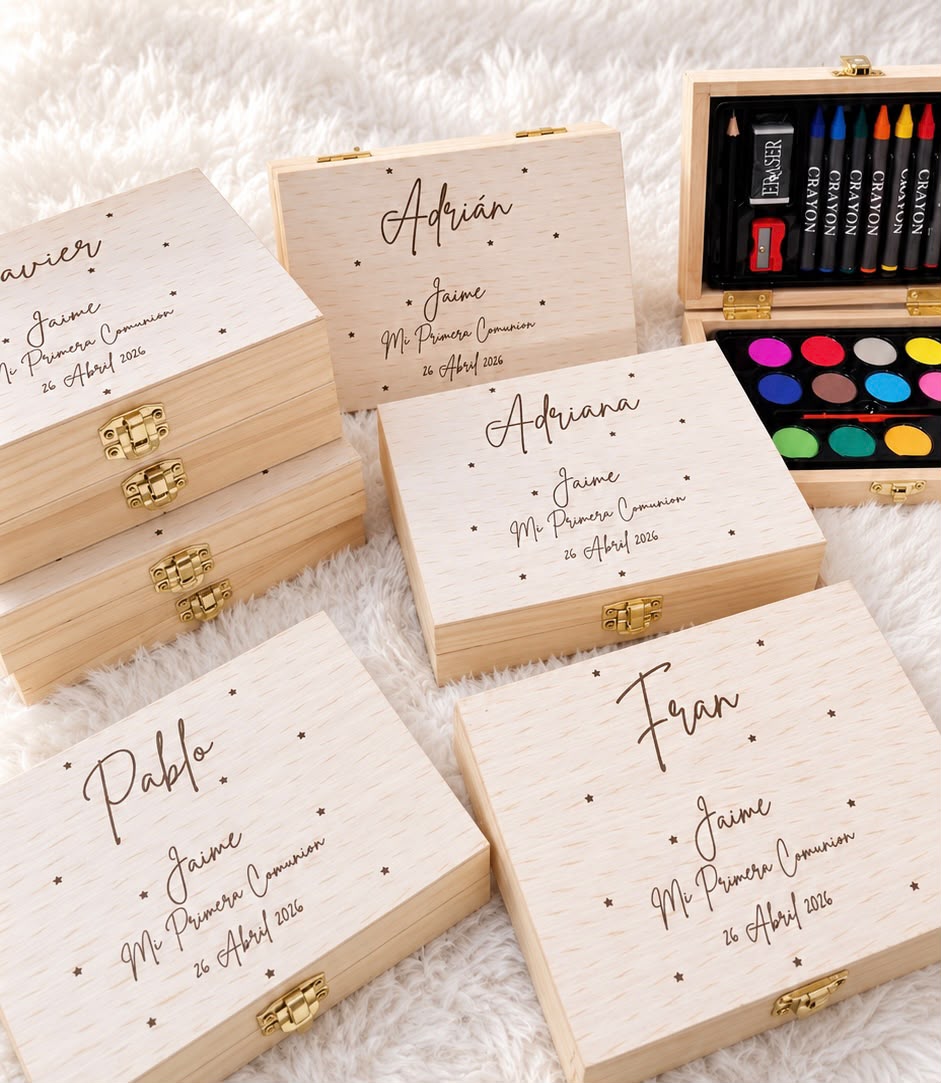 avier
Jaime
Mi Primera Comunion
26 Abril 2026
Adrián
Jaime
Mi Primera Comunion
26 Abril 2026
ERASER
CRAYON
CRAYON
CRAYON
CRAYON
CRAYON
CRAYON
Adriana
Jaime
Mi Primera Comunion
26 Abril 2026
Pablo
Jaime
Mi Primera Comunion
26 Abril 2026
Fran
Jaime
Mi Primera Comunion
26 Abril 2026